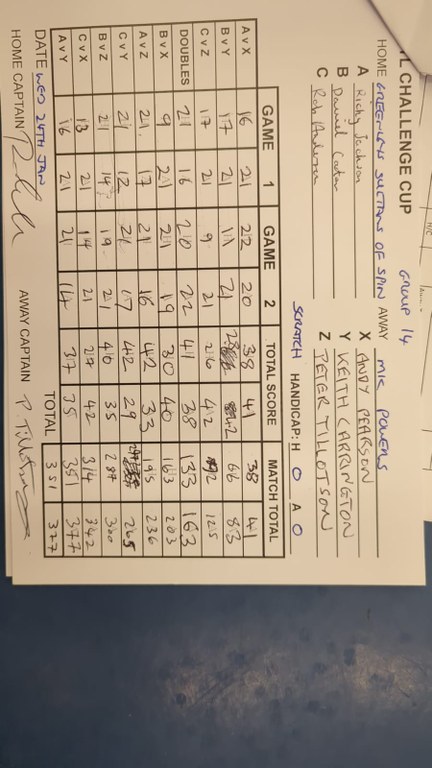 L CHALLENGE CUP GROUP 14
HOME GREENLANS SULTANS OF SPIN AWAY MK POWERS
A Ricky Jackson X ANDY PEARSON
B Daniel Y KEITH CARRINGTON
C Rob Anderson Z PETER TILLOTSON
SCRATCH HANDICAP: H 0 A 0
GAME 1 GAME 2 TOTAL SCORE MATCH TOTAL
A v X 16 21 22 20 38 41 38 41
B v Y 17 21 11 21 28 42 66 83
C v Z 17 21 9 21 26 42 92 125
DOUBLES 21 16 20 22 41 38 133 163
B v X 9 21 21 19 30 40 163 203
A v Z 21 17 21 16 42 33 195 236
C v Y 21 12 21 17 42 29 265
B v Z 21 14 19 21 40 35 287 300
C v X 13 21 14 21 27 42 314 342
A v Y 16 21 21 14 37 35 351 377
TOTAL 351 377
DATE WED 24TH JAN
HOME CAPTAIN AWAY CAPTAIN P. Tillotson